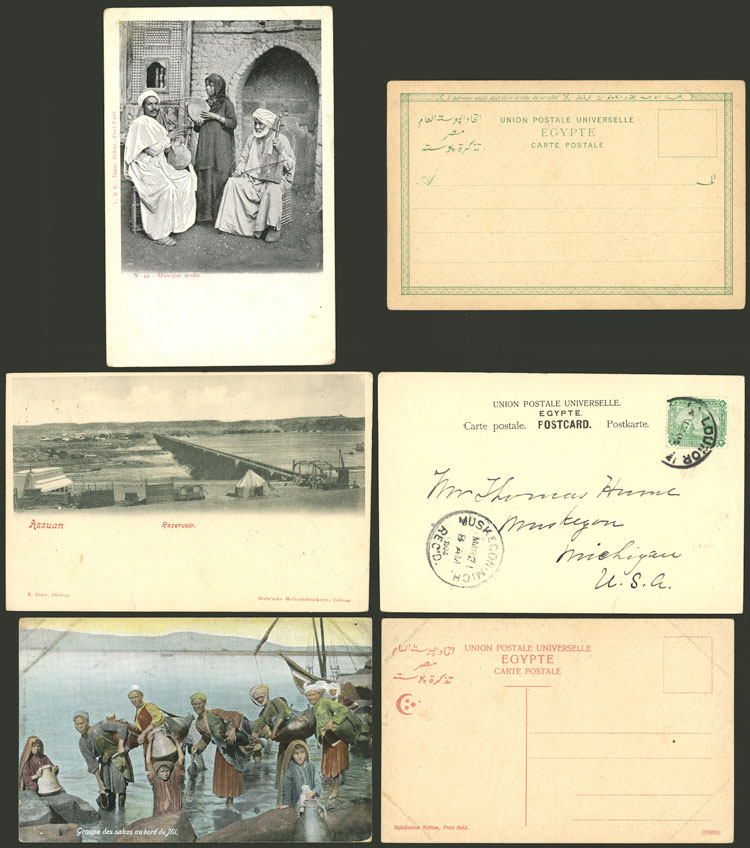 N. 42 - Musique arabe
L'adresse seule doit être écrite de ce côté
اتحاد البوستة العام
مصر
تذكرة بوستة
UNION POSTALE UNIVERSELLE
EGYPTE
CARTE POSTALE
A
الى
Assuan
Reservoir.
UNION POSTALE UNIVERSELLE.
EGYPTE.
Carte postale. POSTCARD. Postkarte.
LOUXOR
Mr Thomas Hume
Muskegon
Michigan
U.S.A.
MUSKEGON, MICH.
8 AM
REC'D.
Groupe des sakas au bord du Nil.
UNION POSTALE UNIVERSELLE
EGYPTE
CARTE POSTALE
اتحاد البوستة العام
مصر
تذكرة بوستة
Port Said.